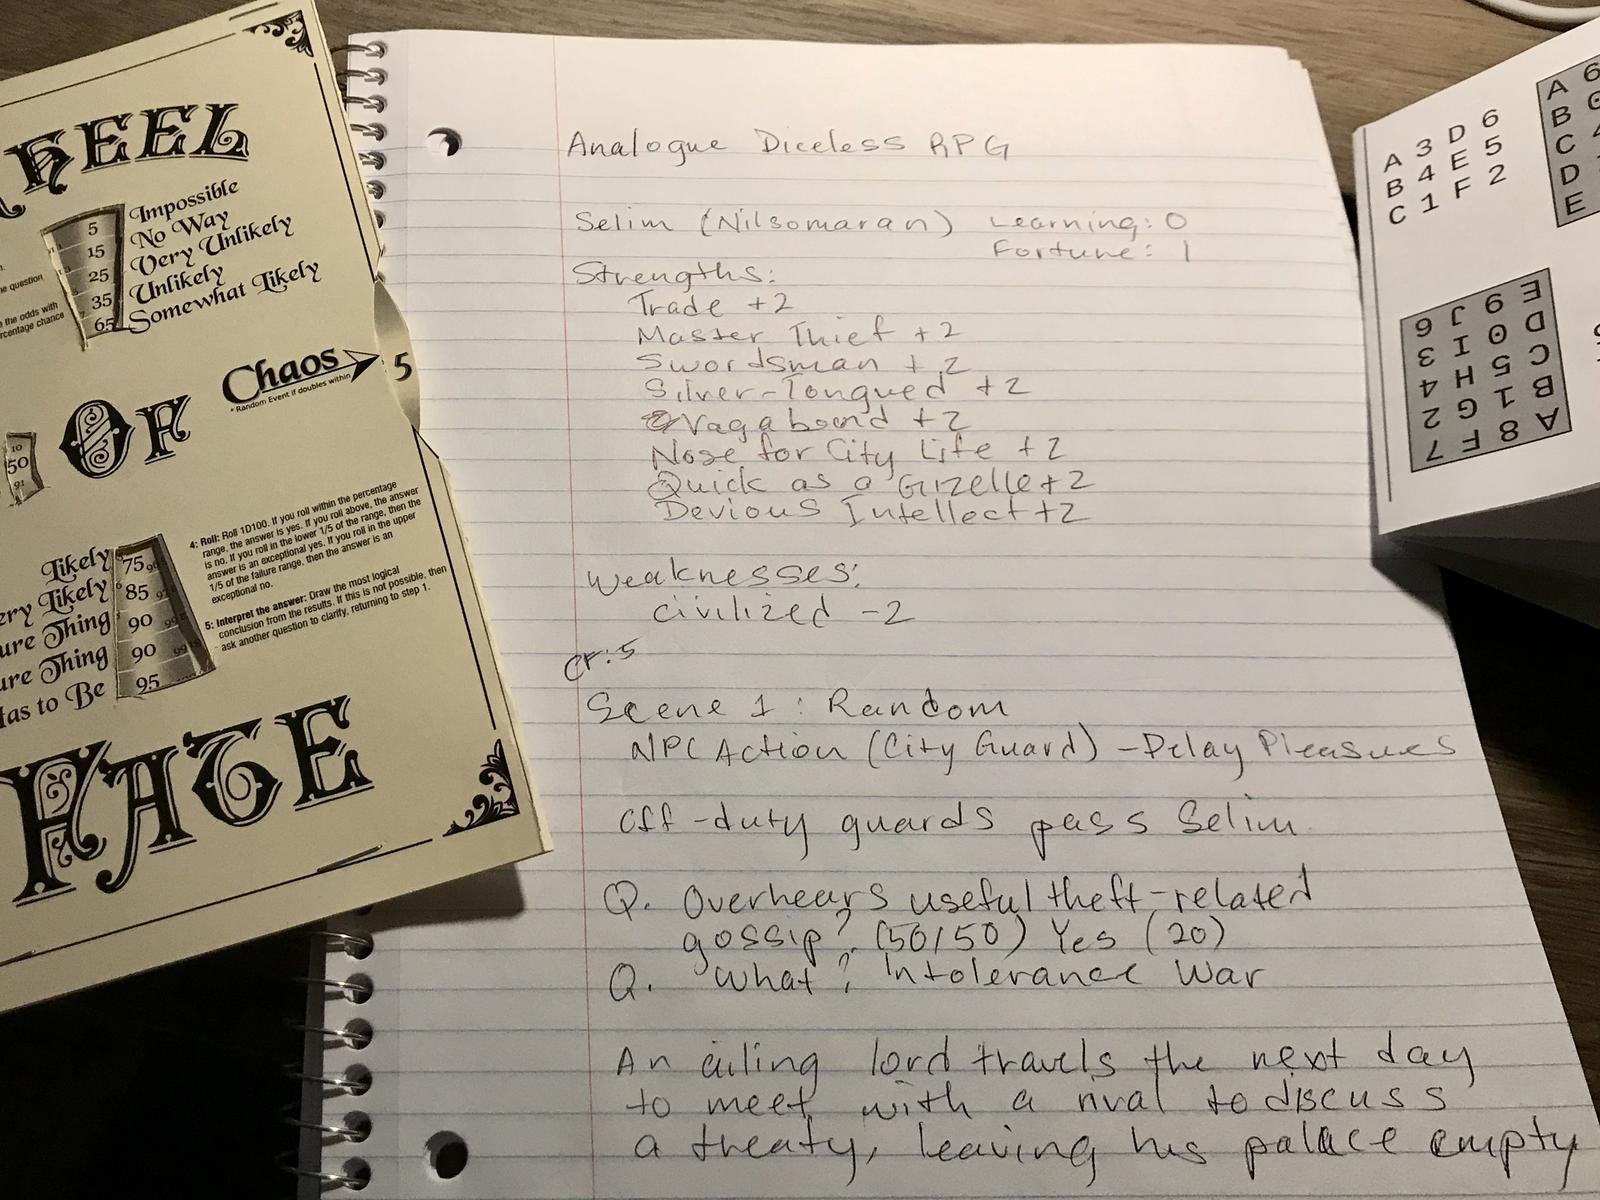 HEEL
Impossible
No Way
Very Unlikely
Unlikely
Somewhat Likely
5
15
25
35
65
question
the odds with
percentage chance
Chaos 5
* Random Event if doubles within
OF
10
50
91
4: Roll: Roll 1D100. If you roll within the percentage
range, the answer is yes. If you roll above, the answer
is no. If you roll in the lower 1/5 of the range, then the
answer is an exceptional yes. If you roll in the upper
1/5 of the failure range, then the answer is an
exceptional no.
5: Interpret the answer: Draw the most logical
conclusion from the results. If this is not possible, then
ask another question to clarify, returning to step 1.
Likely 75
ery Likely 85
ure Thing 90
ure Thing 90
Has to Be 95
FATE
Analogue Diceless RPG
Selim (Nilsomaran) Learning: 0
Fortune: 1
Strengths:
Trade +2
Master Thief +2
Swordsman +2
Silver-Tongued +2
Vagabond +2
Nose for City Life +2
Quick as a Gizelle +2
Devious Intellect +2
Weaknesses:
civilized -2
CF: 5
Scene 1: Random
NPC Action (City Guard) - Delay Pleasures
Off-duty guards pass Selim.
Q. Overhears useful theft-related
gossip? (50/50) Yes (20)
Q. What? Intolerance War
An ailing lord travels the next day
to meet with a rival to discuss
a treaty, leaving his palace empty
A 3 D 6
B 4 E 5
C 1 F 2
A 6
B
C
D
E
A 8 F 7
B 1 G 2
C 5 H 4
D 0 I 3
E 9 J 6